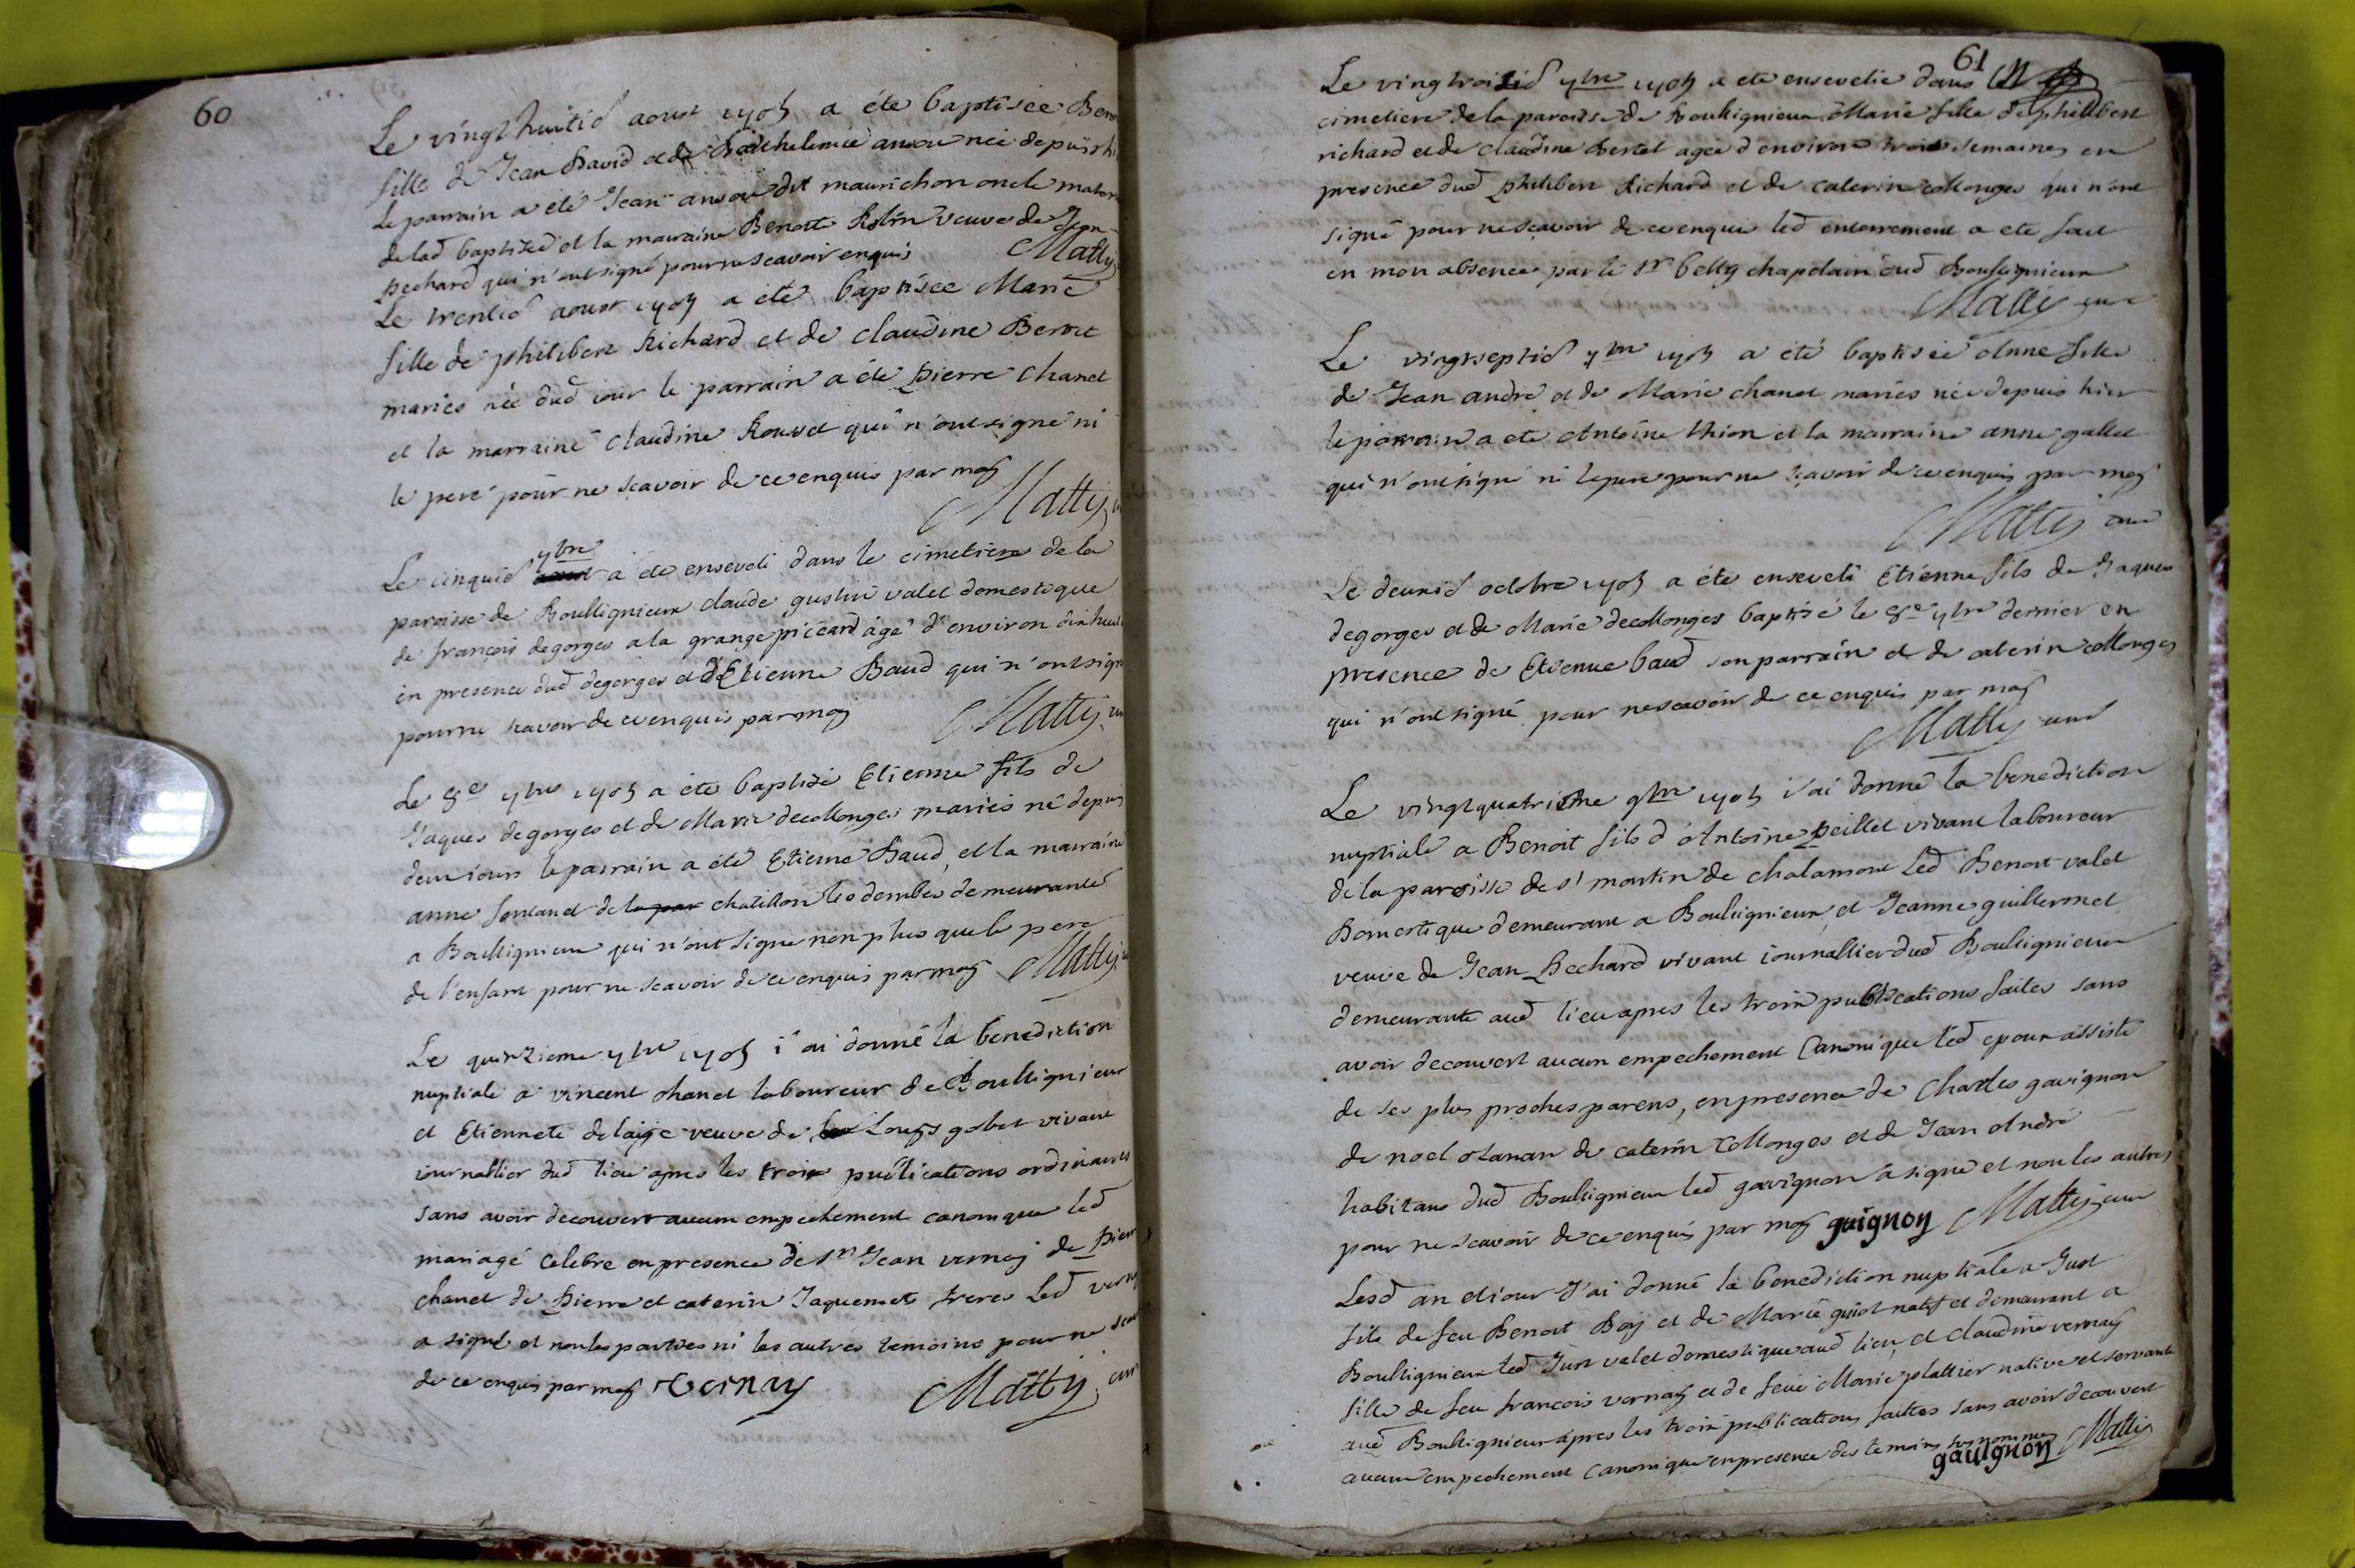 60
Le vingt huitie aoust 1705 a été baptisée Beno
fille de Jean David et de Barthelemie ansou née depuis hi
Le parrain a été Jean ansou dit maurichon oncle matern
delad baptizée et la marraine Benoite Rolin veuve de Jean
Bechard qui n'ont signé pour ne scavoir enquis Matty
Le trentie aoust 1705 a été baptisée Marie
fille de philibert Richard et de claudine Bertet
mariés née dud iour le parrain a été Pierre chanel
et la marraine claudine Rousset qui n'ont signé ni
le pere pour ne scavoir de ce enquis par moy
Matty
7bre
Le cinquie aoust a été enseveli dans le cimetiere de la
paroisse de Boullignieux claude gustin valet domestique
de françois degorges a la grange piccard âgé d'environ dix huit
en presence dud degorges et d'Etienne Baud qui n'ont signé
pour ne scavoir de ce enquis par moy Matty cu
Le 8e 7bre 1705 a été baptizé Etienne fils de
Jaques degorges et de Marie decollonges mariés né depuis
deux iours le parrain a été Etienne Baud, et la marraine
anne fontanel de la par chatillon les dombes demeurante
a Boulligneux qui n'ont signé non plus que le pere
de l'enfant pour ne scavoir de ce enquis par moy Matty
Le quinzieme 7bre 1705 i'ai donné la benediction
nuptiale a vincent chanel laboureur de Boulligneux
et Etiennete delaige veuve de Louys gobet vivant
iournallier dud lieu apres les trois publications ordinaires
sans avoir decouvert aucun empechement canonique led
mariage celebré en presence de Sr Jean vernay de Pierre
chanel de Pierre et caterin Jaquemet freres Led verna
a signé et non les parties ni les autres temoins pour ne scav
de ce enquis par moy vernay Matty cur
61
Le vingtroizie 7bre 1705 a été ensevelie dans le
cimetiere de la paroisse de Boulignieux Marie fille de philibert
richard et de claudine Bertet agée d'environ trois semaines en
presence dud philibert Richard et de caterin collonges qui n'ont
signé pour ne scavoir de ce enquis led enterrement a été fait
en mon absence par le Sr belly chapelain dud Boulignieux
Matty cure
Le vingtseptie 7bre 1705 a été baptisée Anne fille
de Jean andré et de Marie chanel mariés née depuis hier
le parrain a été Antoine thion et la marraine anne gallet
qui n'ont signé ni le pere pour ne scavoir de ce enquis par moy
Matty cure
Le deuxie octobre 1705 a été enseveli Etienne fils de Jaques
degorges et de Marie decollonges baptisé le 8e 7bre dernier en
presence de Etienne baud son parrain et de caterin collonges
qui n'ont signé pour ne scavoir de ce enquis par moy
Matty curé
Le vingtquatrieme 9bre 1705 i'ai donné la benediction
nuptiale a Benoit fils d'Antoine Peillet vivant laboureur
de la paroisse de st martin de chalamont Led Benoit valet
Domestique demeurant a Boulignieux, et Jeanne guillermet
veuve de Jean Bechard vivant iournallier dud Boulignieux
demeurante aud lieu apres les trois publications faites sans
avoir decouvert aucun empechement Canonique led epoux assisté
de ses plus proches parens, en presence de Charles gavignon
de noel Lanan de caterin Collonges et de Jean André
habitans dud Boulignieux led gavignon a signé et non les autres
pour ne scavoir de ce enquis par moy guignon Matty cure
Lesd an et iour J'ai donné la benediction nuptiale a Just
fils de feu Benoit Boy et de Marie guiot natif et demeurant a
Boulignieux led Just valet domestique aud lieu, et claudine vernay
fille de feu francois vernay et de feue Marie plattier native et servante
aud Boulignieux apres les trois publications faites sans avoir decouvert
aucun empechement Canonique en presence des temoins susnommes Matty
gauignon